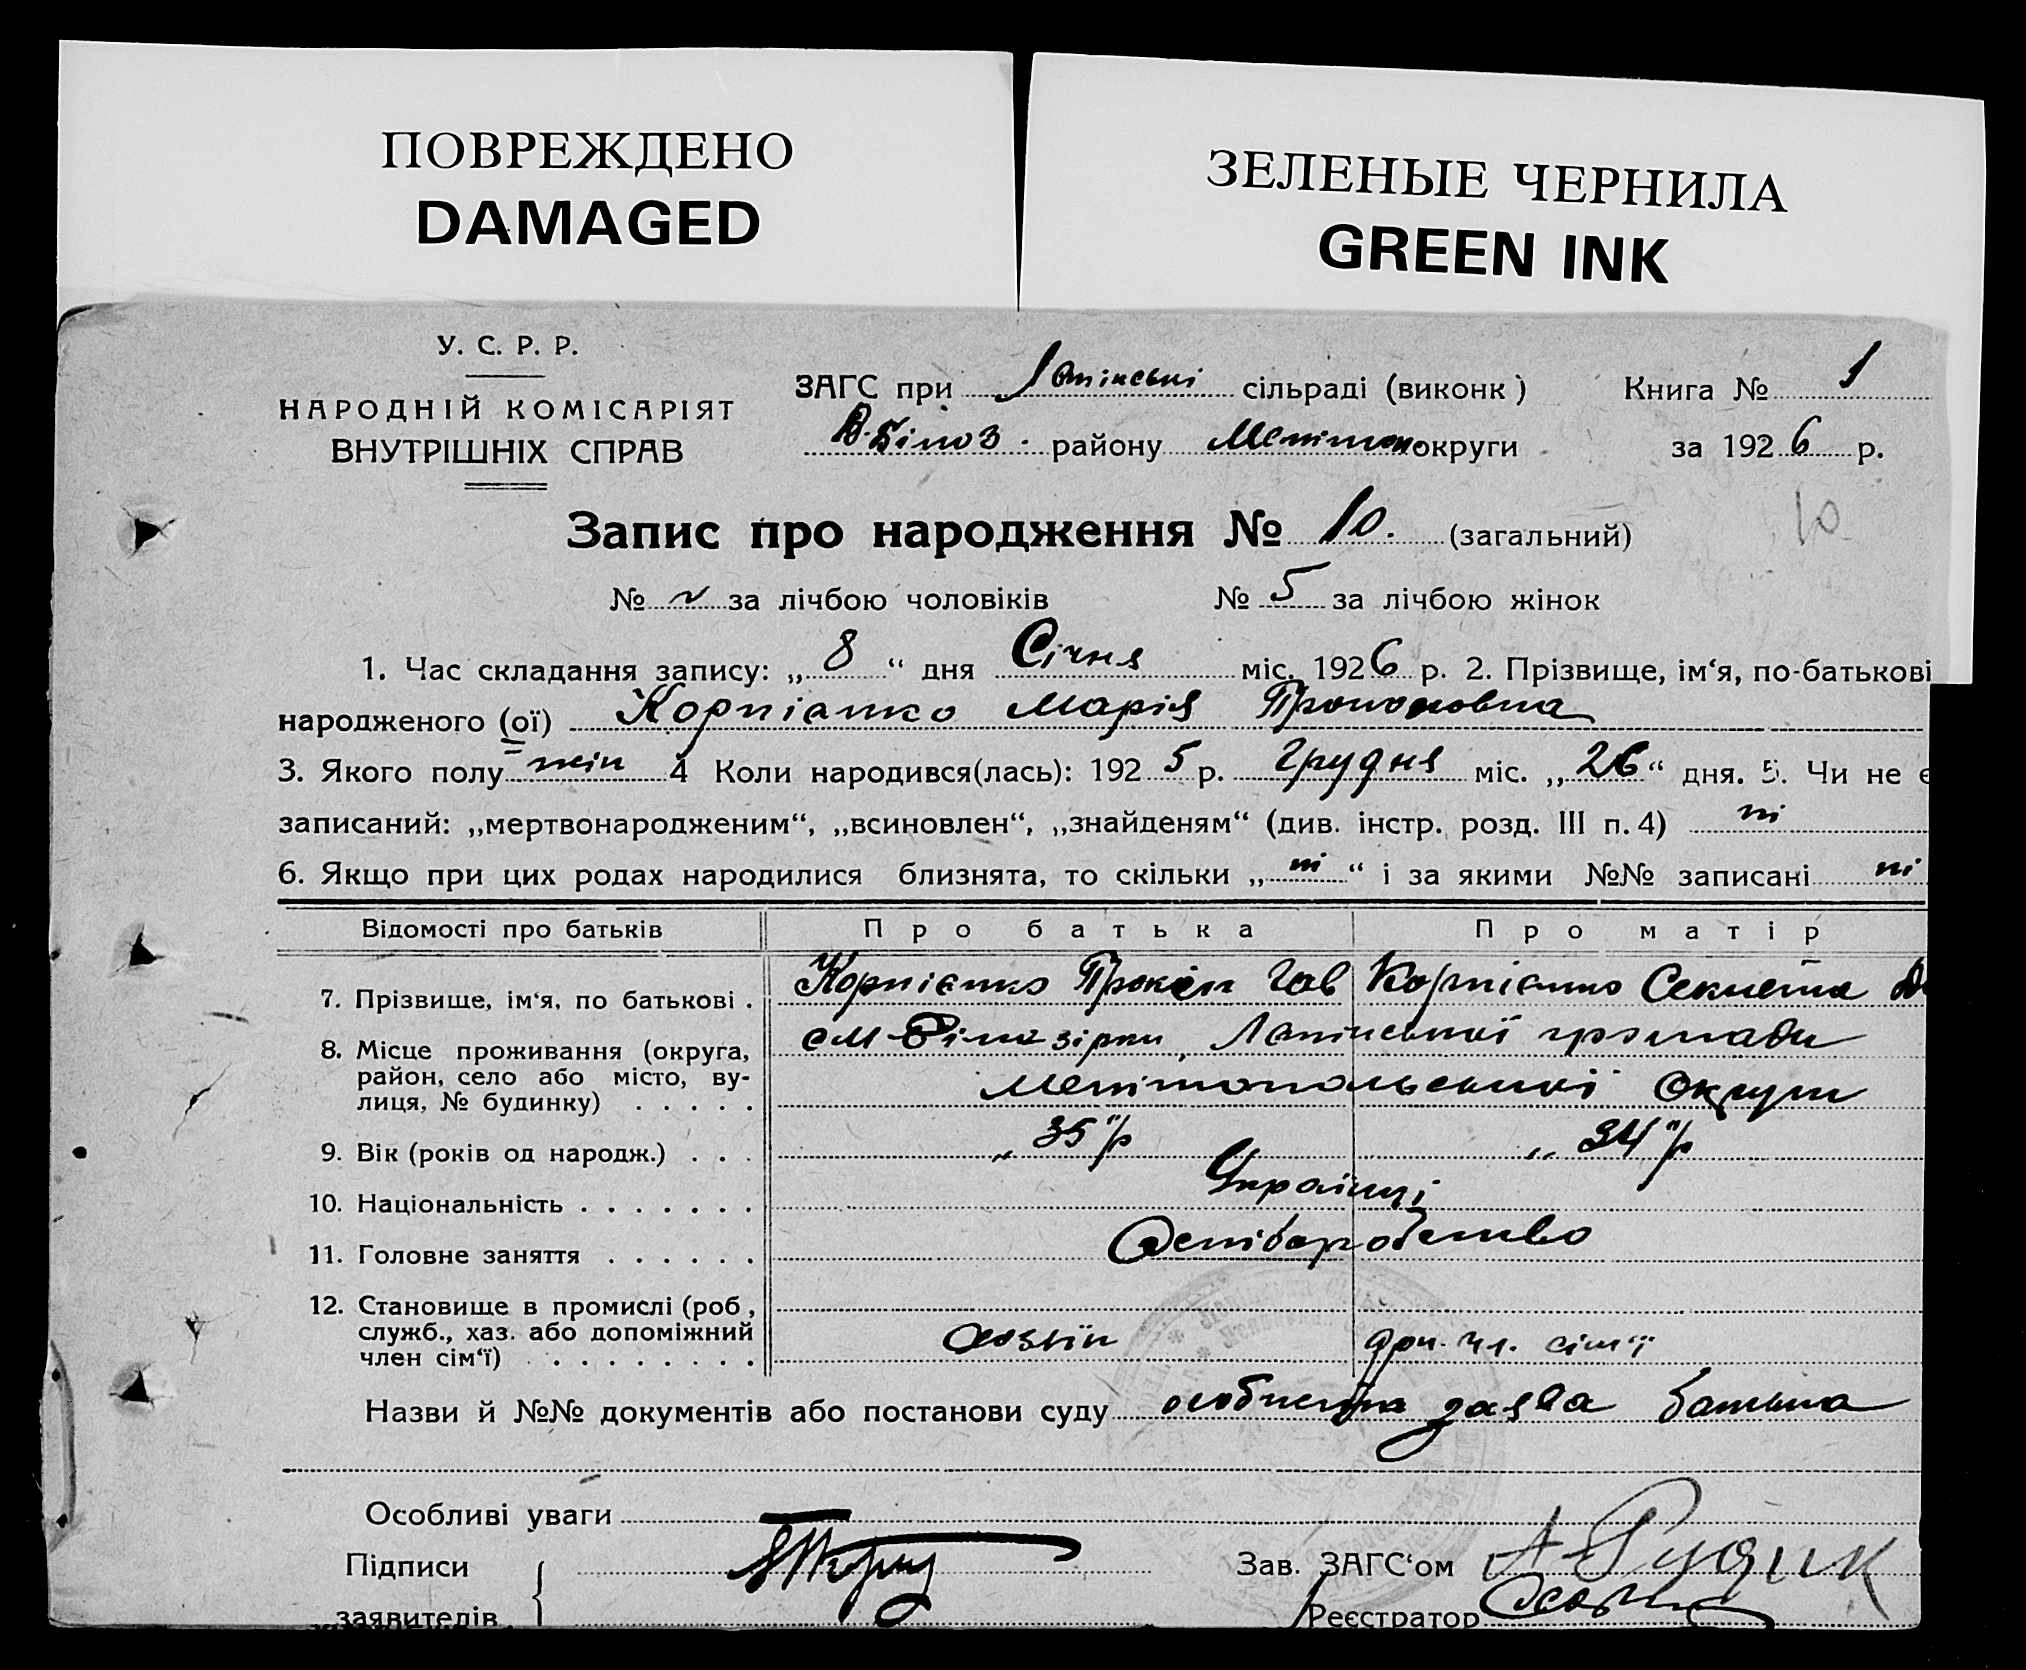 ПОВРЕЖДЕНО
DAMAGED
ЗЕЛЕНЫЕ ЧЕРНИЛА
GREEN INK
У. С. Р. Р.
НАРОДНІЙ КОМІСАРІЯТ
ВНУТРІШНІХ СПРАВ
ЗАГС при сільраді (виконк) Книга № 1
В. Білоз. району Мелітоп округи за 1926 р.
Запис про народження № 10. (загальний)
10
№ за лічбою чоловіків № 5 за лічбою жінок
1. Час складання запису: „ 8 “ дня Січня міс. 1926 р. 2. Прізвище, ім‘я, по-батькові
народженого (ої) Корніанко Марія
3. Якого полу жін 4 Коли народився(лась): 1925 р. Грудня міс. „ 26 “ дня. 5. Чи не є
записаний: „мертвонародженим“, „всиновлен“, „знайденям“ (див. інстр. розд. III п. 4) ні
6. Якщо при цих родах народилися близнята, то скільки „ ні “ і за якими №№ записані ні
Відомості про батьків Про батька Про матір
7. Прізвище, ім‘я, по батькові . Корнієнко Прокіп Гав Корнієнко
8. Місце проживання (округа, район, село або місто, вулиця, № будинку) . . . . . см Білозірки, громади
Мелітопольської Округи
9. Вік (років од народж.) . . . „ 35 „ р „ 34 „ р
10. Національність . . . . . . . Українці
11. Головне заняття . . . . . . Хліборобство
12. Становище в промислі (роб, служб., хаз. або допоміжний член сім‘ї) . . . . . . . . Хозяїн доп. чл. сім'ї
Назви й №№ документів або постанови суду особиста заява батька
Особливі уваги
Підписи
заявителів.
Зав. ЗАГС‘ом А Рудик
Реєстратор